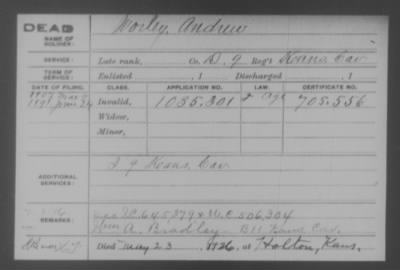 DEAD
NAME OF SOLDIER:
Worley, Andrew
SERVICE:
Late rank, Co. D, 9 Reg't Kans. Cav
TERM OF SERVICE:
Enlisted , 1 Discharged , 1
DATE OF FILING. CLASS. APPLICATION NO. LAW. CERTIFICATE NO.
1891 June 24 Invalid, 1035.301 & Age 705.556
Widow,
Minor,
ADDITIONAL SERVICES:
Kans. Cav
REMARKS:
645879 & W.C 506,304
A. Bradley B 11 Kans Cav.
Died May 23 1926, at Holton, Kans.